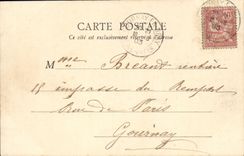 CARTE POSTALE
Ce côté est exclusivement réservé à l'adresse
M me Bréant rentière
15 impasse du Rempart
rue de Paris
Gournay